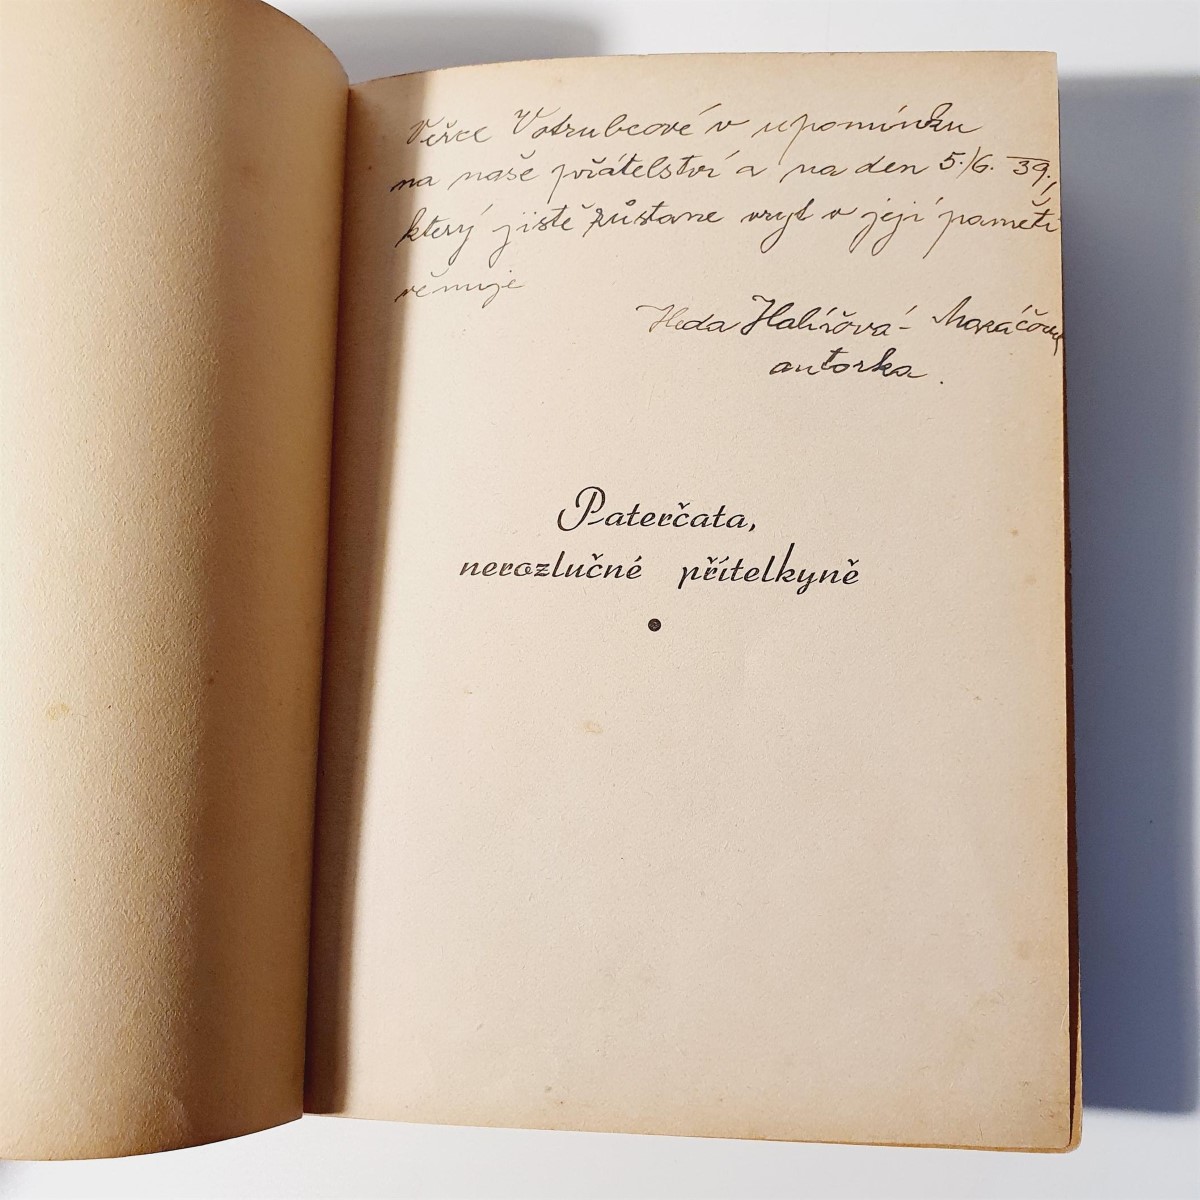 Věrce Votrubcové v upomínku
na naše přátelství a na den 5./6. 39.,
který jistě zůstane vryt v její paměti
věnuje
Heda Halířová-
autorka.
Paterčata,
nerozlučné přítelkyně